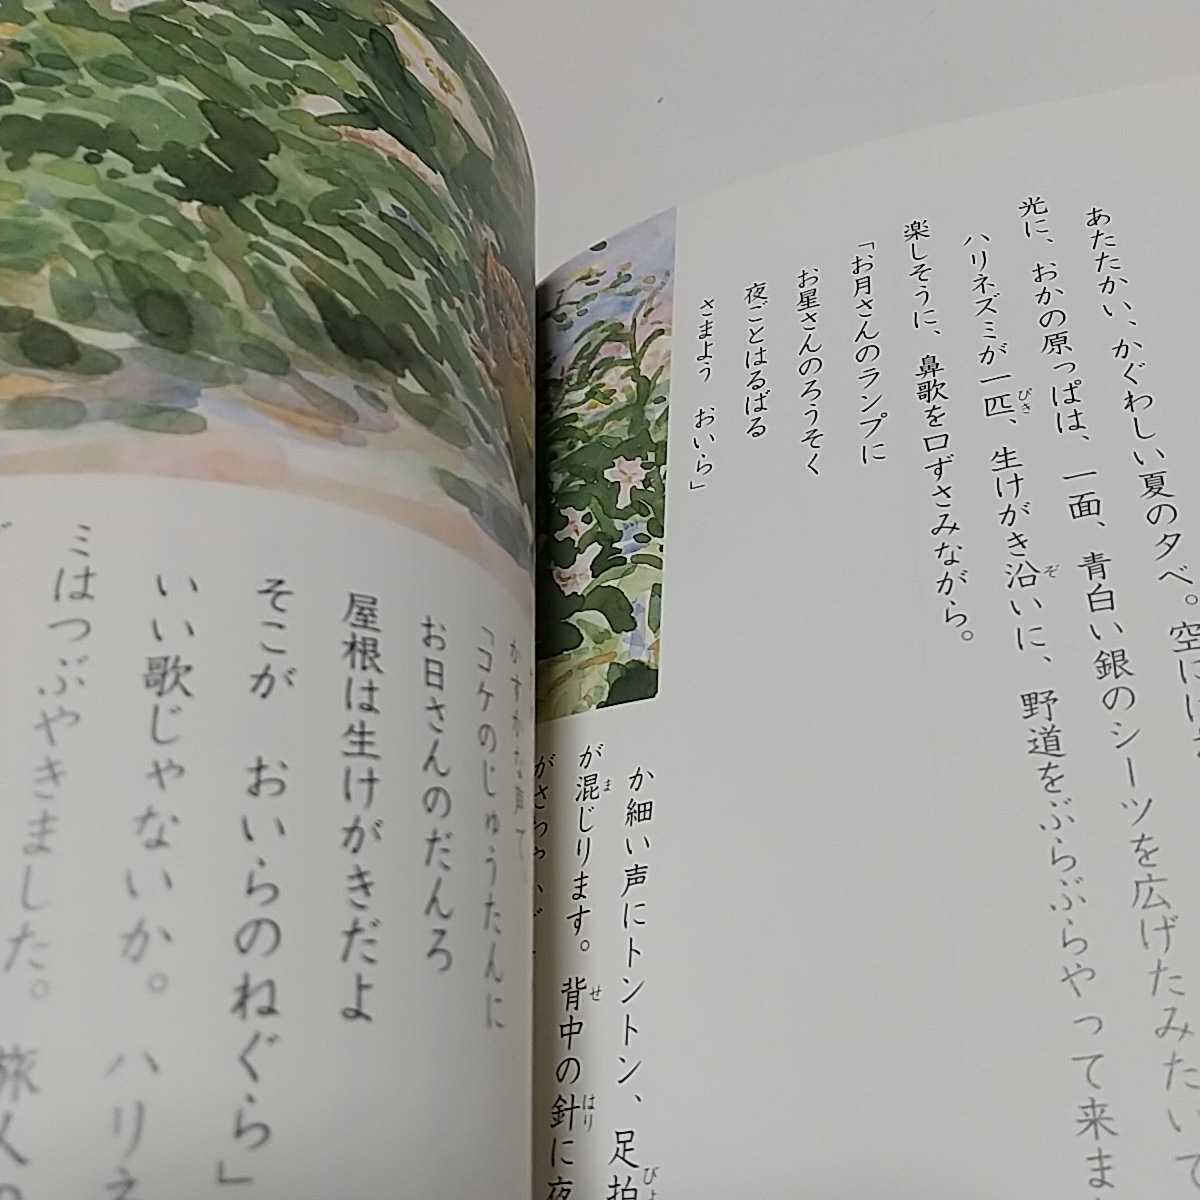 あたたかい、かぐわしい夏の夕べ。空には
光に、おかの原っぱは、一面、青白い銀のシーツを広げたみたいで
ハリネズミが一匹、生けがき沿いに、野道をぶらぶらやって来ま
楽しそうに、鼻歌を口ずさみながら。
「お月さんのランプに
お星さんのろうそく
夜ごとはるばる
さまよう おいら」
か細い声にトントン、足拍
が混じります。背中の針に夜
かすかな声で
「コケのじゅうたんに
お日さんのだんろ
屋根は生けがきだよ
そこが おいらのねぐら」
いい歌じゃないか。ハリネ
ミはつぶやきました。旅人の